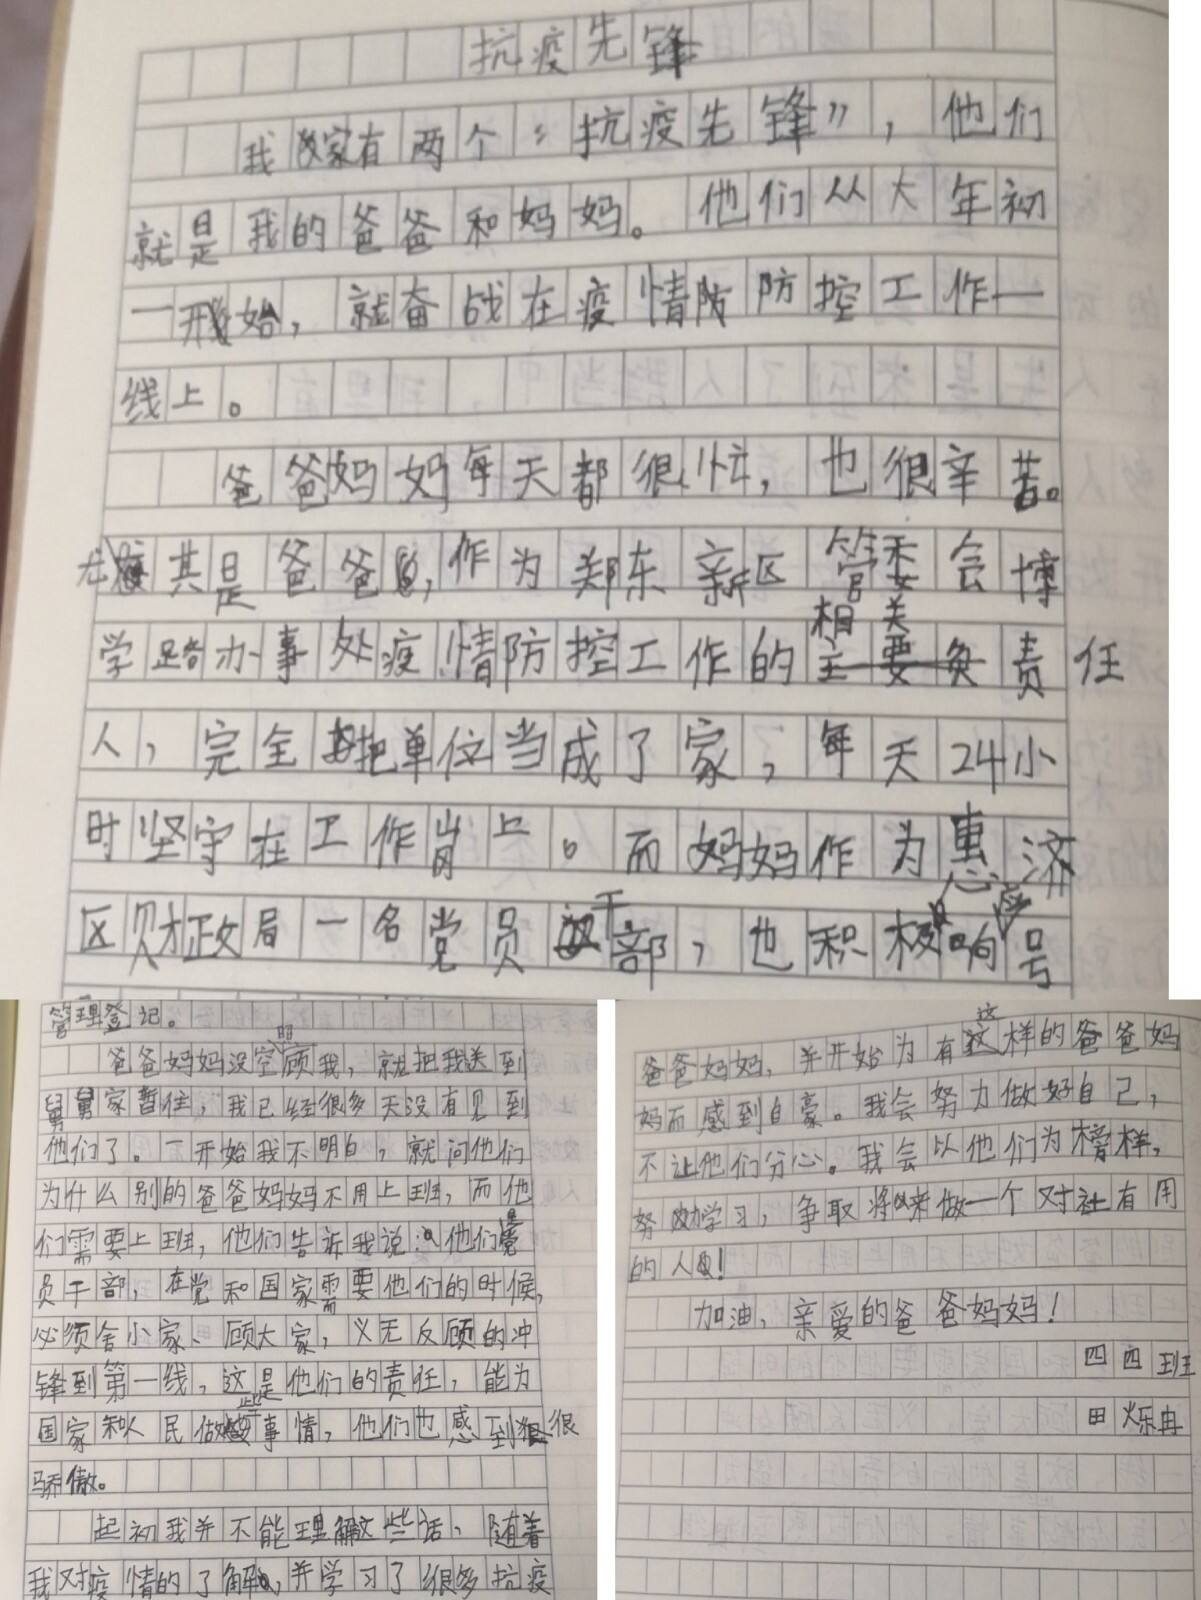 抗疫先锋
我家有两个“抗疫先锋”,他们
就是我的爸爸和妈妈。他们从大年初
一开始,就奋战在疫情防控工作一
线上。
爸爸妈妈每天都很忙,也很辛苦。
尤其是爸爸,作为郑东新区管委会博
学路办事处疫情防控工作的相关负责任
人,完全把单位当成了家,每天24小
时坚守在工作岗上。而妈妈作为惠济
区财政局一名党员干部,也积极响应号
管理登记。
爸爸妈妈没空照顾我,就把我送到
舅舅家暂住,我已经很多天没有见到
他们了。一开始我不明白,就问他们
为什么别的爸爸妈妈不用上班,而他
们需要上班,他们告诉我说他们是党
员干部,在党和国家需要他们的时候,
必须舍小家、顾大家,义无反顾的冲
锋到第一线,这是他们的责任,能为
国家和人民做些事情,他们也感到很
骄傲。
起初我并不能理解这些话、随着
我对疫情的了解,并学习了很多抗疫
爸爸妈妈,并开始为有这样的爸爸妈
妈而感到自豪。我会努力做好自己,
不让他们分心。我会以他们为榜样,
努力学习,争取将来做一个对社有用
的人!
加油,亲爱的爸爸妈妈!
四四班
田烁冉